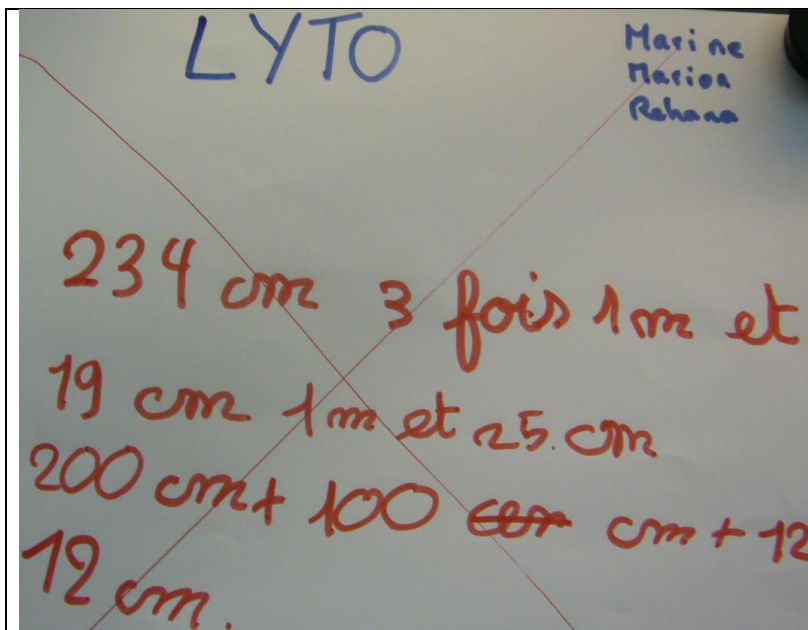 LYTO
Marine
Marion
Rehana
234 cm 3 fois 1m et
19 cm 1m et 25 cm
200 cm + 100 cm + 12
12 cm.